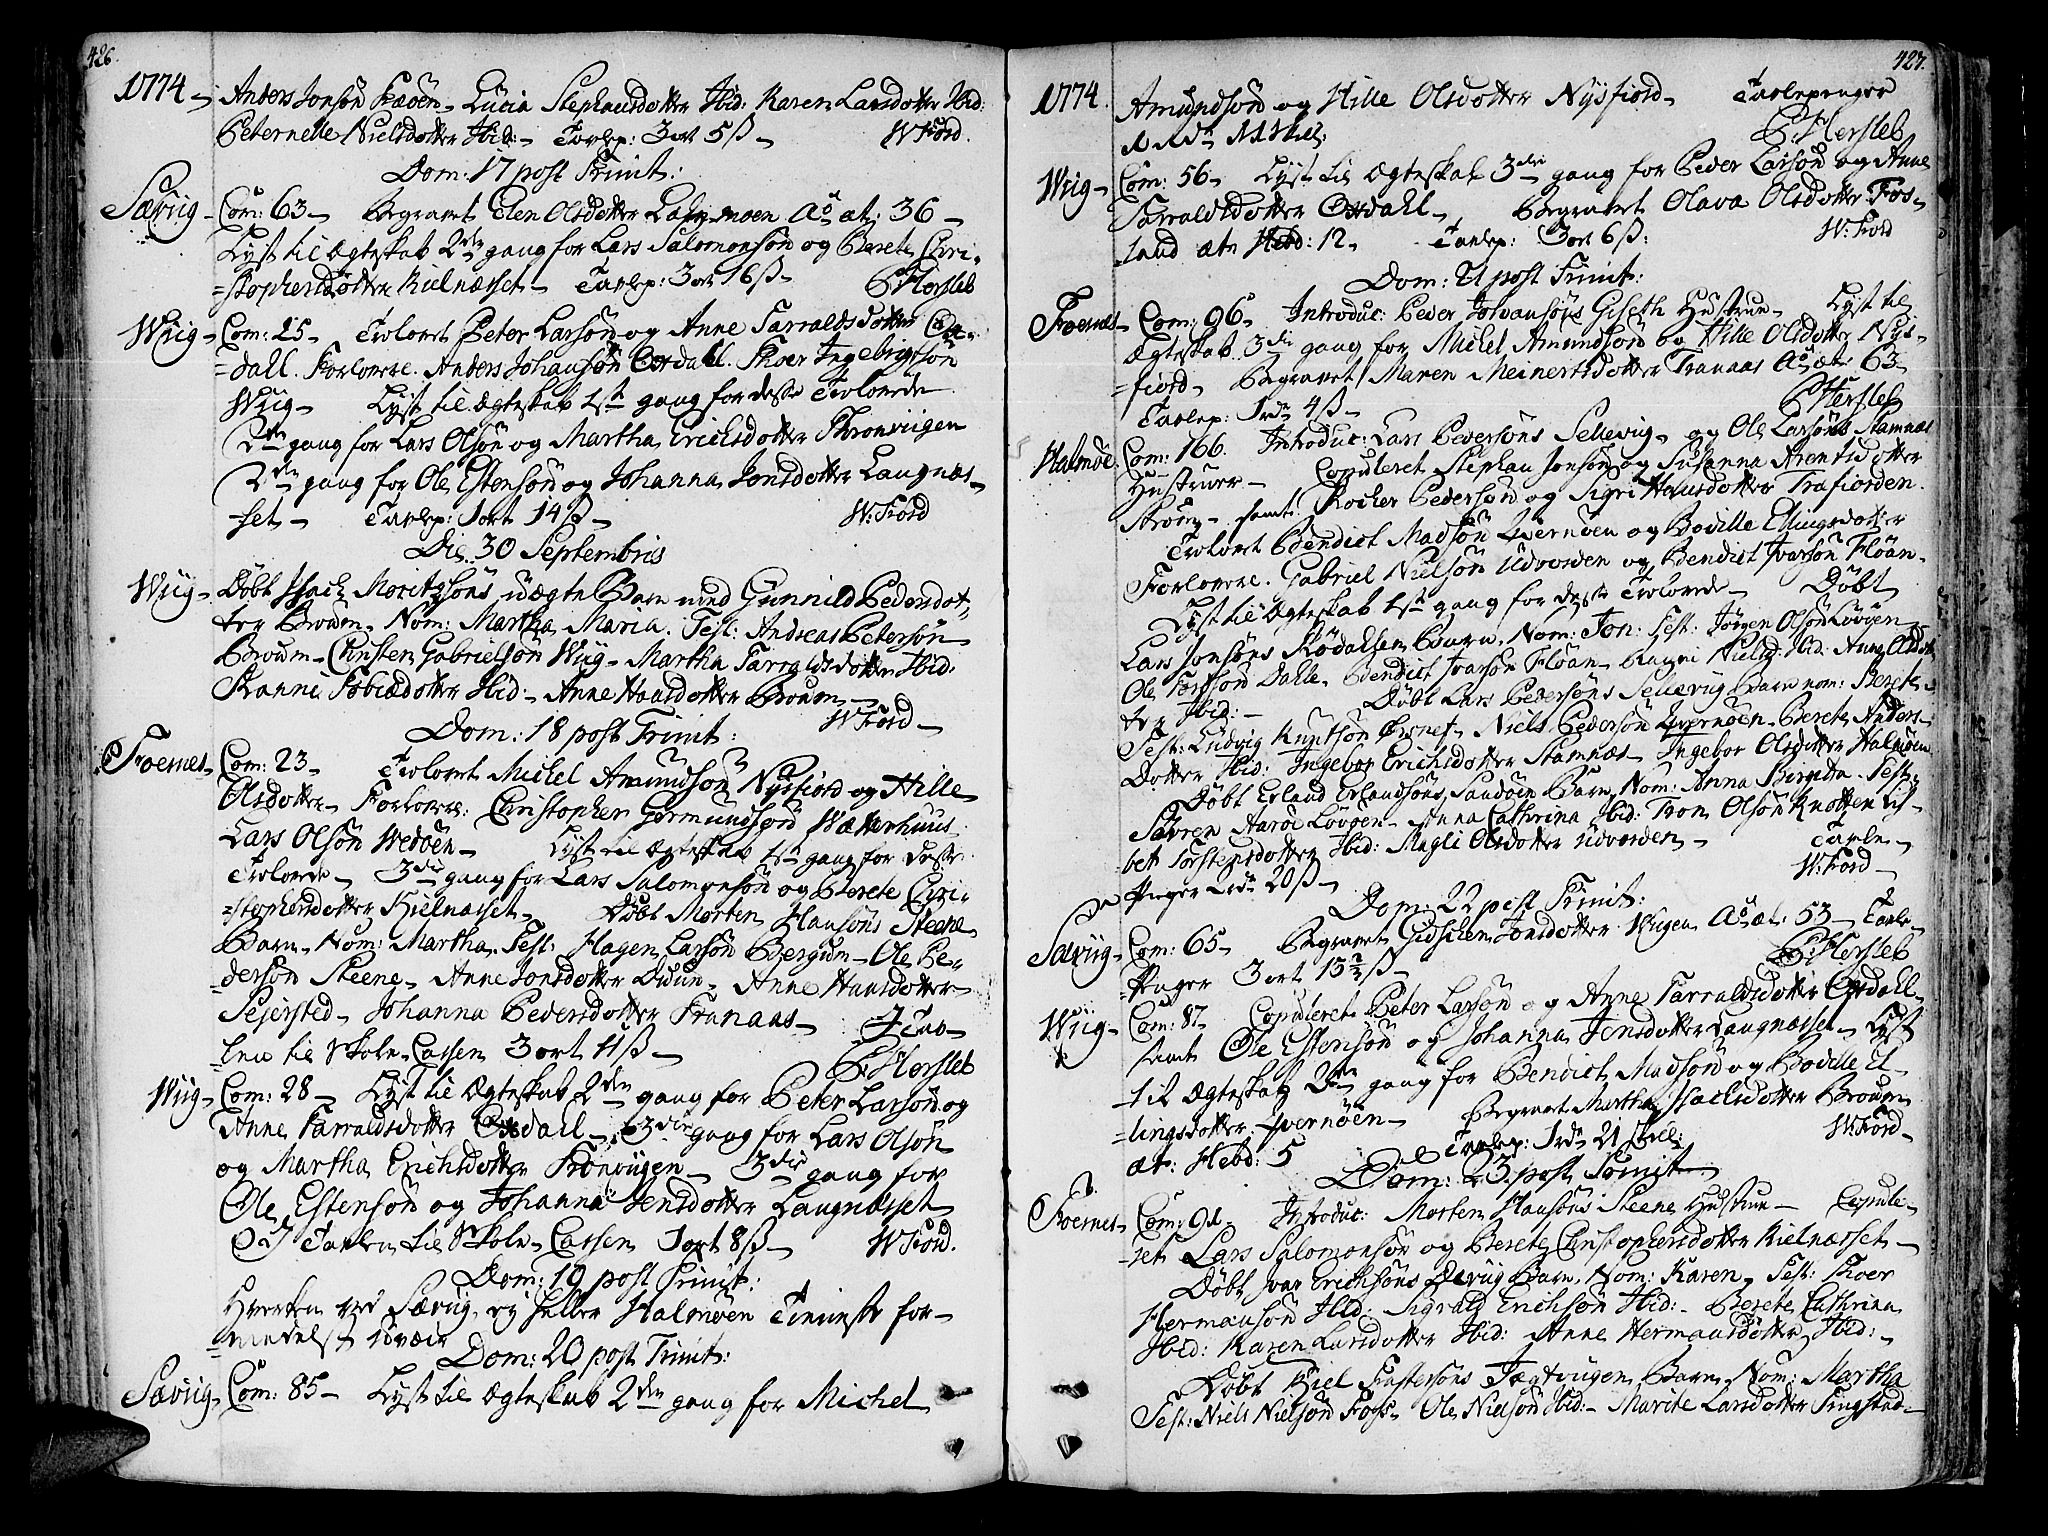 426.
1774 - Anders Jonsön Kæöen - Lucia Stephansdotter Ibid: Karen Larsdotter Ibid:
Peternelle Nielsdotter Ibid: - Tavlep: 3 ort 5 ß - W Fiord.
Dom: 17 post Trinit:
Sævig - Com: 63 - Begravet Elen Olsdotter Lassemoen Aõ æt: 36 -
Lyst til Ægteskab 2den gang for Lars Salomonsön og Berete Chri-
=stophersdotter Kielnæsset - Tavlep: 3 ort 16 ß - P Hersleb
Wiig - Com: 25 - Trolovet Peter Larsön og Anne Tarraldsdotter Ots-
=dall. Forlovere. Anders Johansön Otsdal. Thoer Ingebrigtsön
Wiig - Lyst til Ægteskab 1ste gang for desse Trolovede
2den gang for Lars Olsön og Martha Erichsdotter Thronviigen
2den gang for Ole Estensön og Johanna Jonsdotter Langnæs-
-set - Tavlep: 1 ort 14 ß - W: Fiord
Die 30 Septembris
Wiig - Döbt Isach Moritzsöns uægte Barn med Gunnild Pedersdot-
ter Broum - Nom: Martha Maria. Test: Andreas Petersön
Broum - Christen Gabrielsön Wiig - Martha Tarraldsdotter Ibid:
Ranni Tobiædotter Ibid: - Anne Hansdotter Broum -
W Fiord -
Dom: 18 post Trinit:
Foesnes - Com: 23 - Trolovet Michel Amundsön Nysfiord og Hille
Olsdotter - Forlovere: Christopher Gormundsön Wætterhuus
Lars Olsön Wedöen - Lyst til Ægteskab 1ste gang for desse
Trolovede - 3die gang for Lars Salomonsön og Berete Chri-
=stophersdotter Kielnæsset - Döbt Morten Hansöns Steene
Barn - Nom: Martha. Test: Hagen Larsön Bergum - Ole Pe-
=dersön Steene - Anne Jonsdotter Duun - Anne Hansdotter
Sejersted - Johanna Pedersdotter Tranaas - I Tav-
=len til Skole-Cassen 3 ort 11 ß - P: Hersleb
Wiig - Com: 28 - Lyst til Ægteskab 2den gang for Peter Larsön og
Anne Tarraldsdotter Otsdahl - 3die gang for Lars Olsön
og Martha Erichsdotter Tronviigen - 3die gang for
Ole Estensön og Johanna Jonsdotter Langnæsset
I Tavlen til Skole-Cassen 1 ort 8 ß - W Fiord.
Dom: 19 post Trinit:
Hverken ved Sævig, ej heller Halmöen Tieniste for-
=medelst uveir
Dom: 20 post Trinit:
Sævig - Com: 85 - Lyst til Ægteskab 2den gang for Michel
427.
1774. Amundsön og Hille Olsdotter Nysfiord - Tavlepenger
P: Hersleb
Wiig - Com: 56 - Lyst til Ægteskab 3die gang for Peder Larsön og Anne
Tarraldsdotter Otsdahl - Begravet Olava Olsdotter Fos-
land æt: Hebd: 12 - Tavlep: 3 ort 6 ß: W: Fiord
Dom: 21 post Trinit:
Foesnes - Com: 96 - Introduc: Peder Johansöns Giseth Hustrue - Lyst til
Ægteskab 3die gang for Michel Amundsön og Hille Olsdotter Nys-
=fiord - Begravet Maren Meinertsdotter Tranaas Aõ æt: 63 -
Tavlep: 1 rdr 4 ß - P Hersleb
Halmöe. Com: 166. Introduc: Lars Pedersöns Sellevig - og Ole Larsöns Stamnæs
Hustruer - Copuleret Stephan Jonsön og Susanna Arentsdotter
- samt Pedersön og Sigri Hansdotter Trafiorden.
Trolovet Bendict Madsön Qvernöen og Bodille Ellingsdotter
Forlovere. Gabriel Nielsön Udvorden og Bendict Ivarsön Flöan -
Lyst til Ægteskab 1ste gang for desse Trolovede - Döbt
Lars Jonsöns Rödahlsen Baarn. Nom: Jon: Test: Jörgen Olsön Lövöen -
Ole Dalle - Bendict Ivarsön Flöan - Ragni Nielsd: Ibid: Anne Olsdot-
ter Ibid: - Döbt Lars Pedersöns Sellævig Barn nom: Berete
Test: Ludvig Knutsön - Niels Pedersön Qvernöen - Berete Anders-
Dotter Ibid: Ingebor Erichsdotter Stamnæs - Ingebor Olsdotter Halmöen
Döbt Erland Erlandsöns Sandöen Barn, Nom: Anna Test:
Sövren Lövöen - Anna Cathrina Ibid: Tron Olsön Knotten Lis-
bet Torstensdotter Ibid: Magli Olsdotter Udvorden - Tavle-
Penger 1 rdr 20 ß - W: Fiord -
Dom: 22 post Trinit:
Sæviig - Com: 65 - Begravet Gidschen Jonsdotter Wiigen Aõ æt: 53 - Tavle-
=Penger 3 ort 15 ½ ß - P: Hersleb
Wiig - Com: 87 - Copuleret Peter Larsön og Anne Tarraldsdotter Otsdahl -
samt Ole Estensön og Johanna Jonsdotter Langnæsset - Lyst
til Ægteskab 2den gang for Bendict Madsön og Bodille El-
=lingsdotter Qvernöen - Begravet Martha Isachsdotter Broum
æt: Hebd: 5 Tavlep: 1 rdr 21 skil: W: Fiord -
Dom: 23 post Trinit
Foesnes - Com: 91 - Introduc: Morten Hansöns Steene Hustrue - Copule-
=ret Lars Salomonsön og Berete Christophersdotter Kielnæsset -
Döbt Ivar Erichsöns Barn, Nom: Karen - Test: Thoer
Hermansön Ibid: Sigvald Erichsön Ibid: - Berete Cathrina
Ibid: Karen Larsdotter Ibid: Anne Hermansdotter Ibid: -
Döbt Kiel Tostersöns Jægtvigen Barn, Nom: Martha
Test: Niels Nielsön Foss - Ole Nielsön Ibid: - Marite Larsdotter Tingstad -